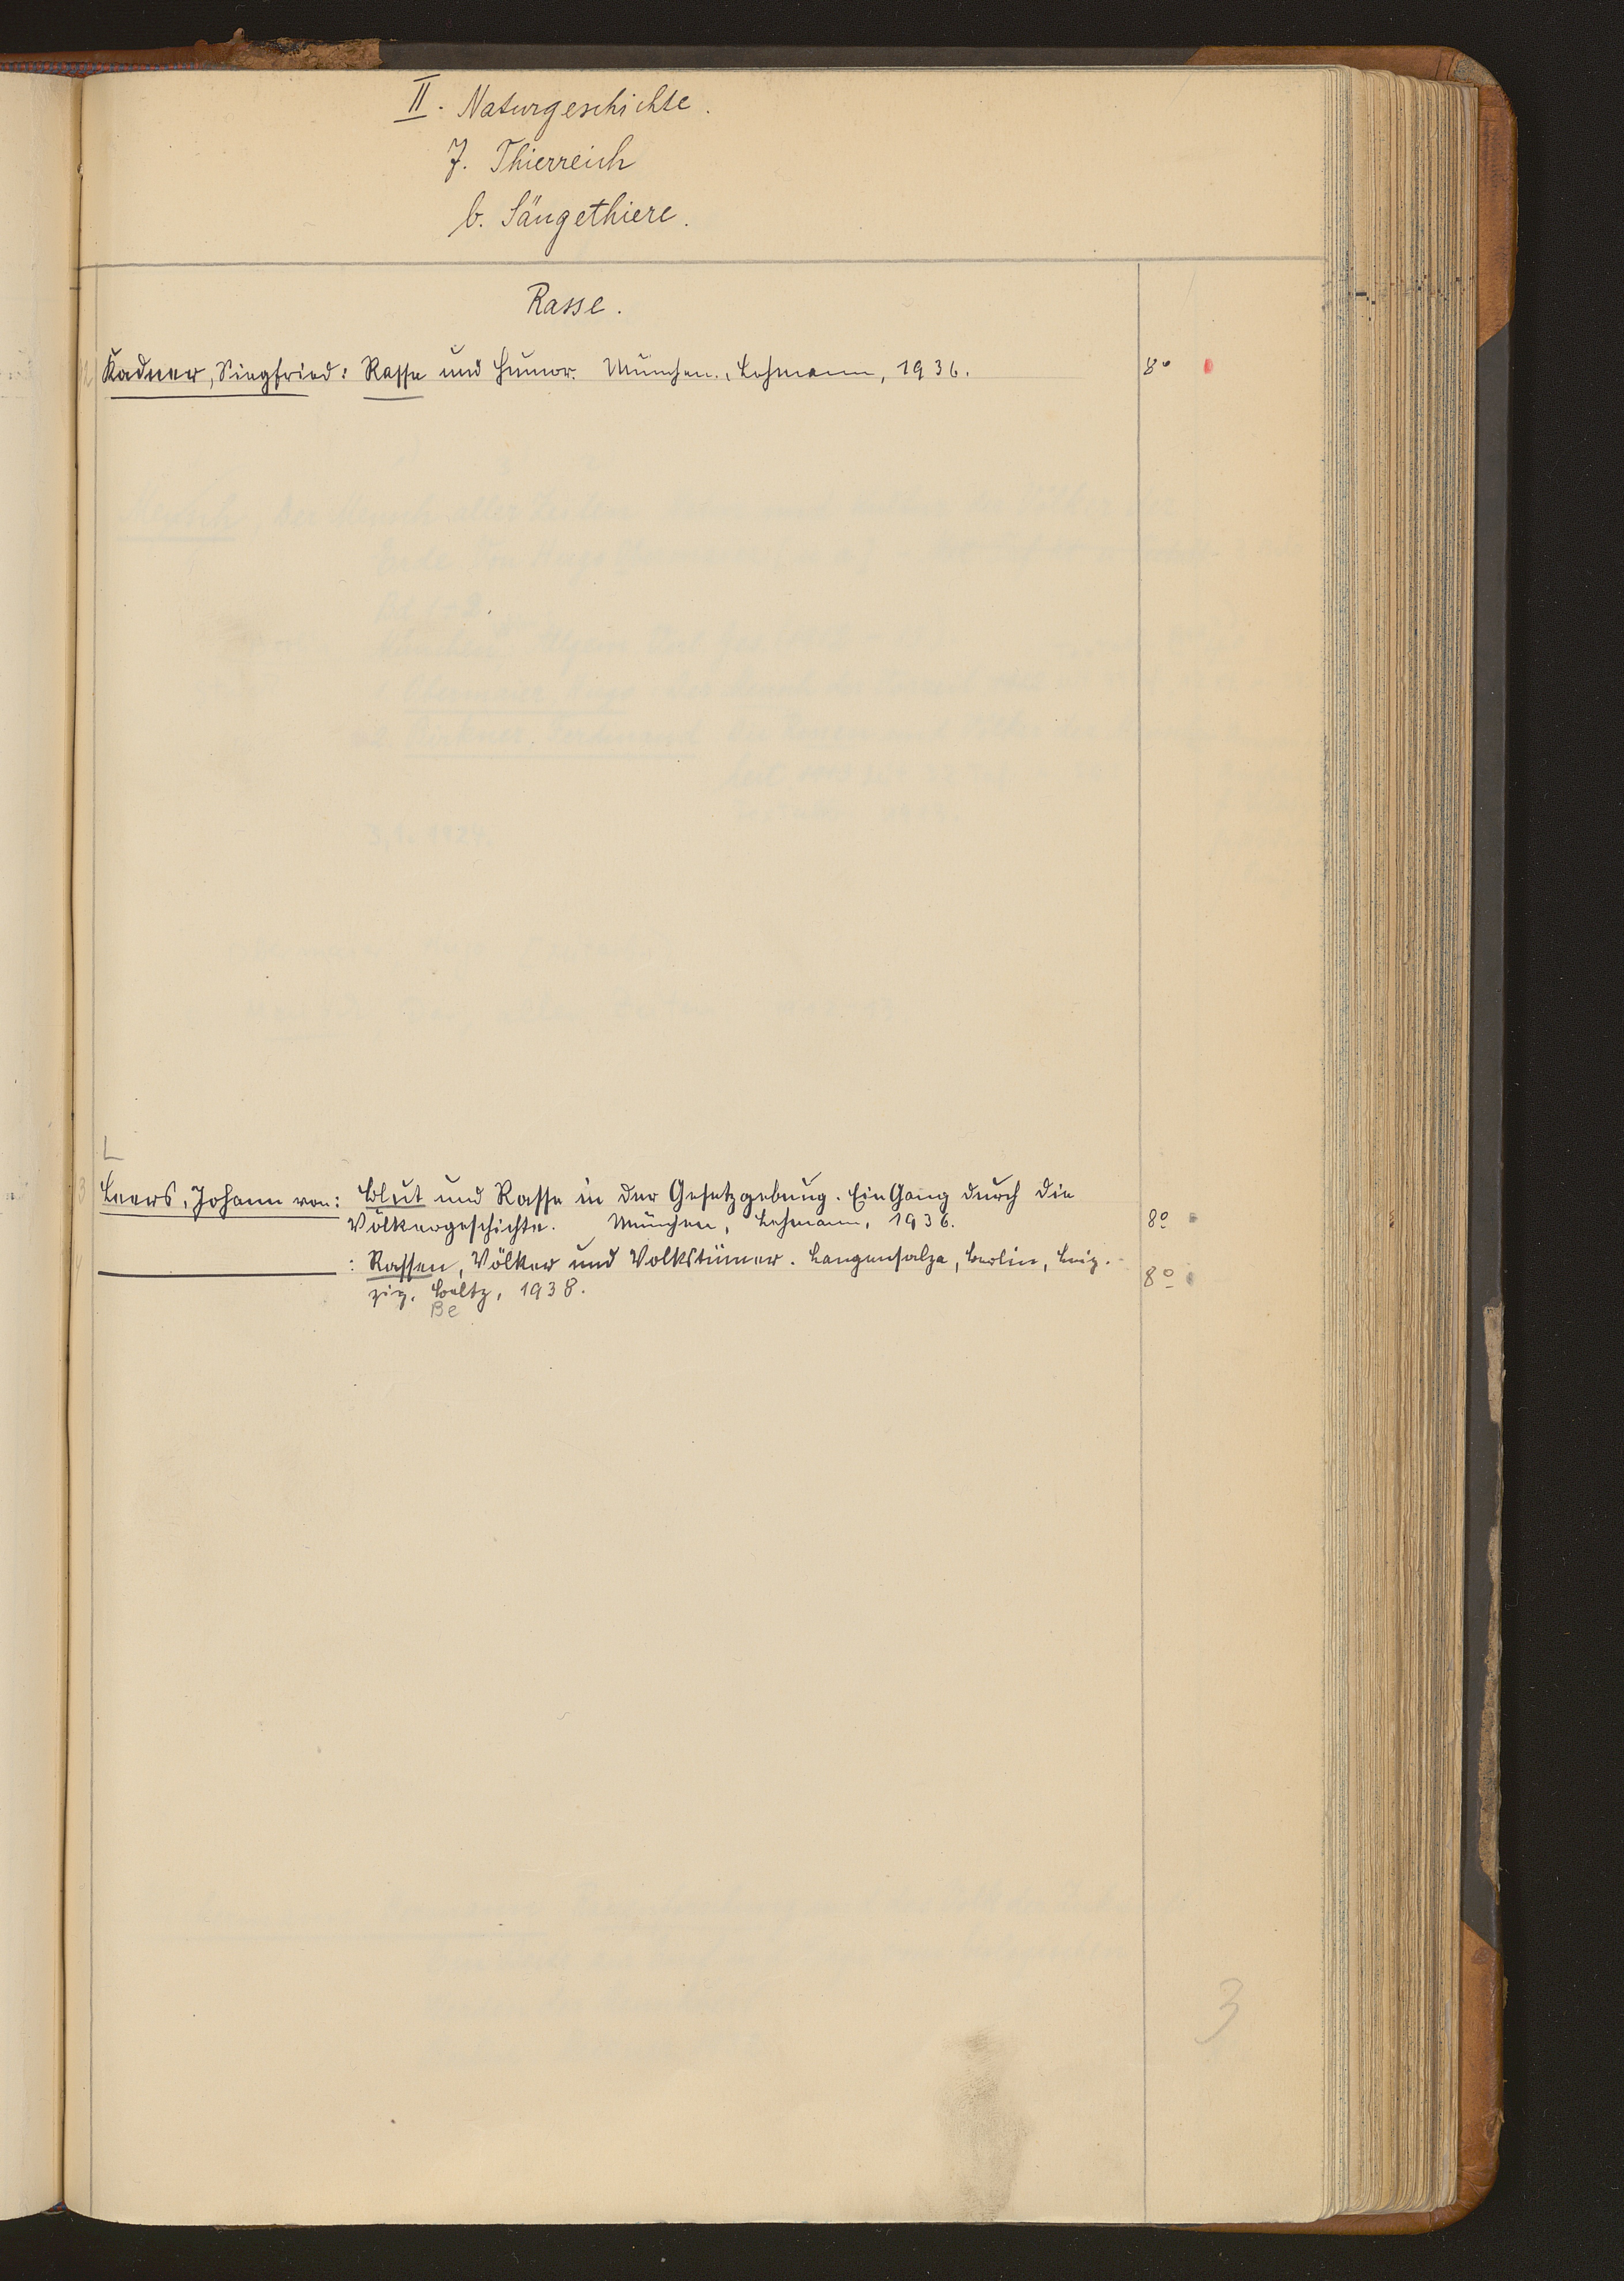 II. Naturgeschichte.
7. Thierreich
b. Säugethiere.
Rasse.
Kadner, Siegfried: Rasse und Humor. München, Lehmann, 1936. 8°
L
Leers, Johann von: Blut und Rasse in der Gesetzgebung. Ein Gang durch die
Völkergeschichte. München, Lehmann, 1936. 8°
: Rassen, Völker und Volkstümer. Langensalza, Berlin, Leip-
zig, Beltz, 1938. 8°
Be
3